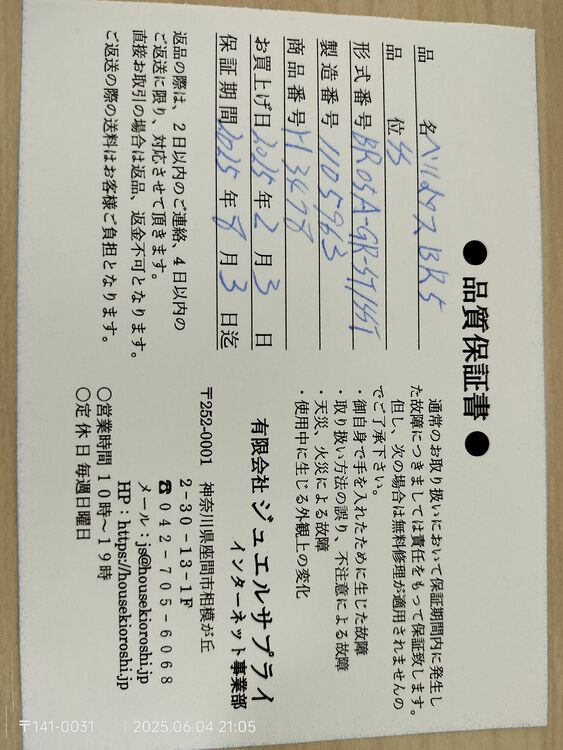 ● 品質保証書 ●
品　名 ベル&ロス BR5
品　位 SS
形式番号 BR05A-GR-ST/SST
製造番号 1105963
商品番号 H3478
お買上げ日 2025年2月3日
保証期間 2025年8月3日迄
返品の際は、2日以内のご連絡、4日以内の
ご返送に限り、対応させて頂きます。
直接お取引の場合は返品、返金不可となります。
ご返送の際の送料はお客様ご負担となります。
通常のお取り扱いにおいて保証期間内に発生し
た故障につきましては責任をもって保証致します。
但し、次の場合は無料修理が適用されませんの
でご了承下さい。
・御自身で手を入れたために生じた故障
・取り扱い方法の誤り、不注意による故障
・天災、火災による故障
・使用中に生じる外観上の変化
有限会社 ジュエルサプライ
インターネット事業部
〒252-0001 神奈川県座間市相模が丘
2-30-13-1F
☎042-705-6068
メール：js@housekioroshi.jp
HP：https://housekioroshi.jp
〇営業時間 10時〜19時
〇定休日 毎週日曜日
〒141-0031 2025.06.04 21:05